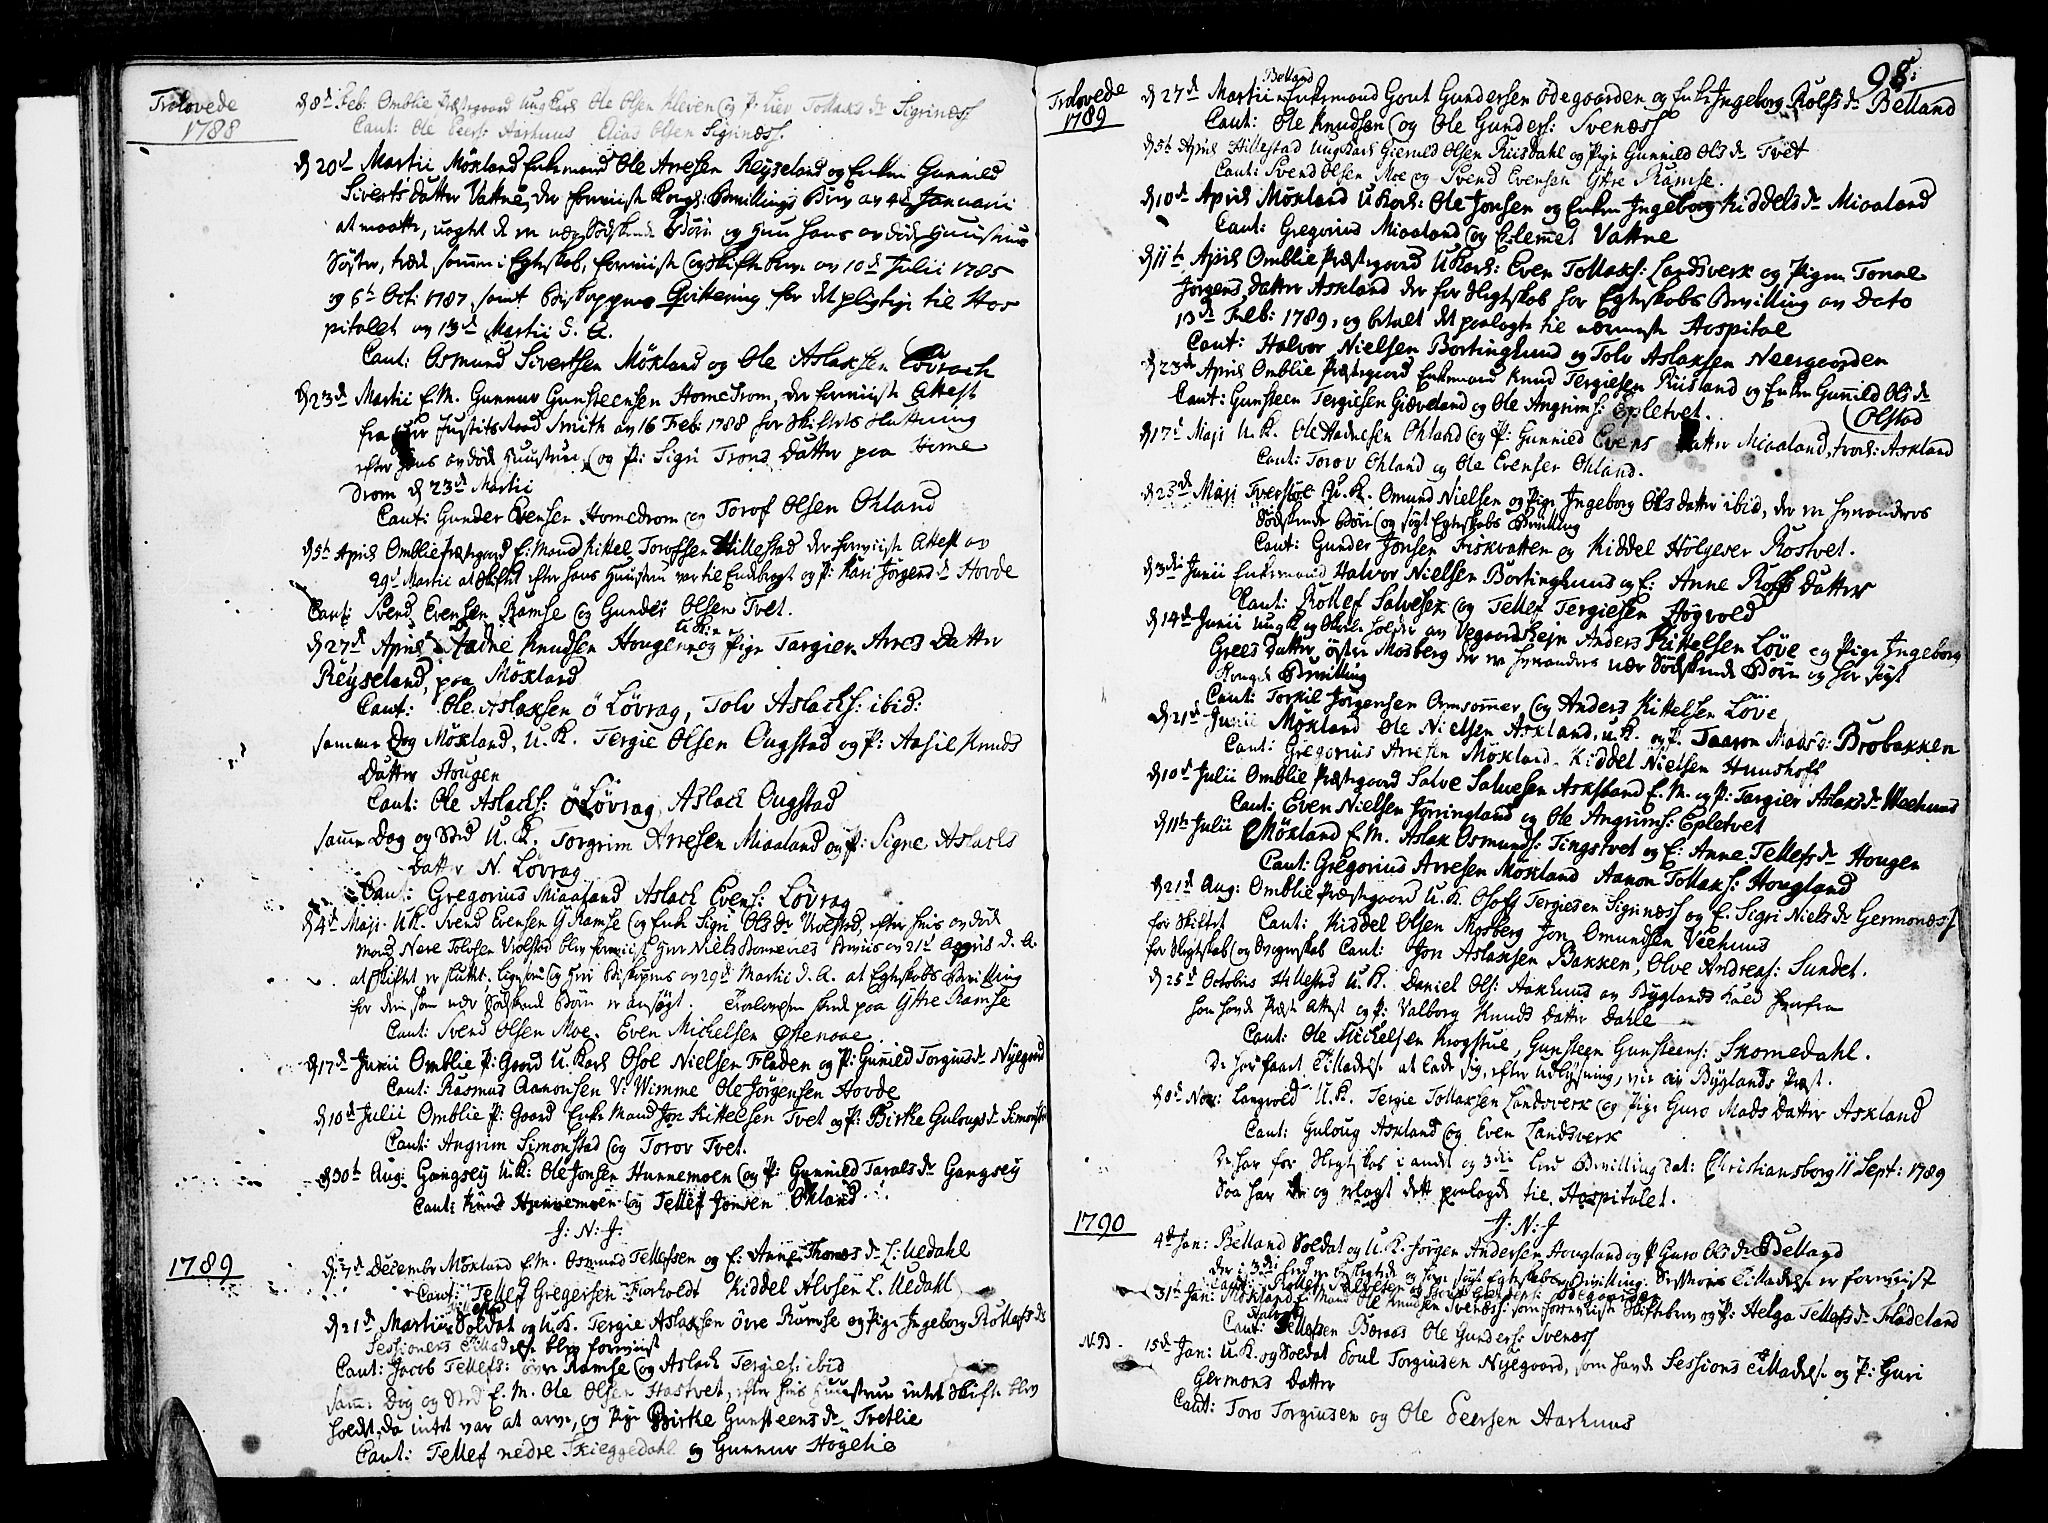 Trolovede
1788
d 8d Feb: Omblie Præstegaard Ung Karl Ole Olsen Kleven og P: Liev Tollaks dr Sigrinæs:
Caut: Ole Peers: Aarhuus Elias Olsen Sigrinæss.
d 20d Martii Möxland Enkemand Ole Arresen Reyseland og Enken Gunnild
Siverts Datter Vattne, der foreviiste Kongel: Bevillings Brev av 4d Januarii
at maatte, uagtet de er nær Södskende Börn og Hun hans avdöde Huustrues
Söster, træde sammen i Egteskab, foreviiste og Skiftebrev av 10d Julii 1785
og 6t Oct: 1787, samt Biskoppens Qvittering for det pligtige til Hos
pitalet av 13d Martii S. A.
Caut: Osmund Sivertsen Möxland og Ole Aslaksen Lövrach
d 23d Martii E.M. Gunnur Gunsteensen Homedrom, der foreviiste Attest
fra Hr Justits Raad Smith av 16 Feb: 1788 for Skiftets Slutning
efter hans avdöde Huustrue, og P: Sigri Trons Datter paa Home
drom d 23d Martii
Caut: Gunder Evensen Homedrom og Torof Olsen Ohland
d 5t April Omblie Præstegaard E: Mand Kittel Torofsen Hillestad der foreviiste Attest av
29d Martii at Skiftet efter hans Huustrue var til Endebragt og P: Kari Jörgens dr Hovde
Caut: Svend Evensen Ramse og Gunder Olsen Tvet.
U.K:
d 27d April Aadne Knudsen Hougen og Pige Targier Arres Datter
Reyseland, paa Möxland
Caut: Ole Aslaksen Ö Lövrag, Tolv Aslachs: ibid:
samme Dag Möxland, U.K. Tergie Olsen Ougstad og P: Aasie Knuds
Datter Hougen
Caut: Ole Aslachs: Ö Lövrag, Aslach Ougstad
samme Dag og Sted U.K. Torgrim Arresen Miaaland og P: Signe Aslachs
Datter N. Lövrag
Caut: Gregorius Miaaland Aslach Evens: Lövrag
d 4d Maji U.K. Svend Evensen Y Ramse og Enke Sigri Ols Dr Uvelstad, efter hvis avdöde
Mand Nere Tolefsen Violstad blev foreviist Hr Niels Beviis av 21d April d. A.
at Skiftet er sluttet, ligesom og Herr Biskopens av 29d Martii d. A. at Egteskabs Bevilling
for dem som nær Södskende Börn er ansögt. Trolovelsen skeede paa Yttre Ramse
Caut: Svend Olsen Moe. Even Michelsen Östenaae
d 17d Junii Omblie P: Gaard U. Karl Osol Nielsen Fladen og P: Gunnild Torgius dr Nyegaard
Caut: Rasmus Aamonsen V: Wimme Ole Jörgensen Hovde
d 10d Julii Omblie P: Gaard Enke Mand Jon Kittelsen Tvet og P: Birke Gulougs dr Simonstad
Caut: Angrim Simonstad og Torov Tvet.
d 30t Aug: Gangsey U.K: Ole Jonsen Hunnemoen og P: Gunnild Taralds dr Gangsey
Caut: Knud Hunnemoen og Tellef Jonsen Ohland
J: N: J:
1789
d 7d Decembr Möxland E.M. Osmund Tellefsen og E: Anne Thomæs dr L: Uedahl
Caut: Tellef Gregersen Fiorholdt Kiddel Alvsen L. Uedahl
d 21d Martii Soldat og U.K. Tergie Aslaksen övre Ramse og Pige Ingeborg Rollefs dr
Sessionens Tilladelse blev foreviist
Caut: Jacob Tellefs: övre Ramse og Aslach Tergies: ibid
Sam: Dag og Sted E.M. Ole Olsen Hastvet, efter hvis Huustrue intet Skifte blev
holdt, da intet var at arve, og Pige Birke Gunsteens dr Tretlie
Caut: Tellef nedre Skieggedahl og Gunnur Höyelie
98:
Trolovede
1789
Belland
d 27d Martii Enkemand Gout Gundersen Ödegaarden og Enke Ingeborg Rolfs dr Belland
Caut: Ole Knudsen og Ole Gunders: Svenæss
d 5t April Hillestad Ung Karl Gieruld Olsen Riisdahl og Pige Gunnild Ols dr Tvet
Caut: Svend Olsen Moe og Svend Evensen Yttre Ramse.
d 10d April Möxland U Karl: Ole Jonsen og Enken Ingeborg Kiddels dr Miaaland
Caut: Gregorius Miaaland og Clemmet Vattne
d 11t April Omblie Præstegaard U Karl: Even Tollaks: Landsverk og Pigen Tonne
Jörgens Datter Askland der for Slegtskab har Egteskabs Bevilling av Dato
13d Feb: 1789, og betalt det paalagte til nærmeste Hospital
Caut: Halvor Nielsen Bortinghuud og Tolv Aslaksen Neergaarden
d 23d April Omblie Præstegaard Enkemand Knud Tergiesen Riisland og Enken Gunnild Ols dr
Olstad
Caut: Gunsteen Tergiesen Giæveland og Ole Angrims: Epletvet.
d 17d Maji U.K. Ole Aadnesen Ohland og P: Gunnild Evens Datter Miaaland,: Askland
Caut: Torov Ohland og Ole Evensen Ohland.
d 23d Maji Tverstöl U.K. Omund Nielsen og Pige Ingeborg Ols Datter ibid, der er hverandres
Södskende Börn og sögt Egteskabs Bevilling
Caut: Gunder Jonsen Fiskvatten og Kiddel Hölgesen Rostvet.
d 3die Junii Enkemand Halvor Nielsen Bortinghuus og E: Anne Rolfs Datter
Caut: Rollef Salvesen og Tellef Tergiesen Högvold
d 14d Junii Ung K og Skoleholder av Vegaardshejn Anders Kittelsen Löve og Pige Ingeborg
Grees Datter, östre Mosberg der er hverandres nær Södskende Börn og har sögt
Kongel: Bevilling
Caut: Torkil Jörgensen Ormsommer og Anders Kittelsen Löve
d 21d Junii Möxland Ole Nielsen Askland, U.K. og P: Taaron Mads d: Brobakken
Caut: Gregorius Arresen Möxland. Kiddel Nielsen Huushoft
d 10d Julii Omblie Præstegaard Salve Salvesen Askland E.M. og P: Targier Aslaks dr Weehuus
Caut: Even Nielsen Jörringland og Ole Angrims: Epletvet
d 11t Julii Möxland E.M. Aslak Osmunds: Tingstvet og E: Anne Tellefs dr Hougen
Caut: Gregorius Arresen Möxland Aanon Tollaks: Hougland
d 21d Aug: Omblie Præstegaard U.K. Osofs Tergiesen Sigrinæss og E. Sigri Niels dr Germonæss
for Skiftet Caut: Kiddel Olsen Mosberg Jon Omundsen Veehuus
for Slegtskab og Caut: Jon Aslaksen Bakken, Olve Andreas: Sundet.
d 25d Octobris Hillestad U.K. Daniel Ols: Aakhuus av Byglands Kald hvorfra
han havde Præste Attest og P: Valborg Knuds Datter Dahle
Caut: Ole Michelsen Krogstue, Gunsteen Gunsteens: Skomedahl.
De har faaet Tilladelse at lade sig, efter Udlysning, vie av Byglands Præst.
d 8d Nov: Langvold U.K. Tergie Tollaksen Landsverk og Pige Guro Mads Datter Askland
Caut: Guloug Askland og Even Landsverk
De har for Slegtskab i andet og 3die Leed Bevilling dat: Christiansborg 11 Sept: 1789
Saa har de og erlagt dett paalagde til Hospitalet.
1790
J: N: J
4d Jan: Belland Soldat og U.K. Jörgen Andersen Hougland og P Guro Ols dr Belland
der i 3die Leed er beslegtede og have sögt Egteskabs Bevilling. Sessions Tilladelse er foreviist
31t Jan: Möxland E: Mand Ole Knudsen Svenæss: som foreviiste Skiftebrev og P: Helga Tellefs dr Fladeland
Caut: Tellefsen Beraas Ole Gunders: Svenæss
N.B. 15d Jan: U.K. og Soldat Soul Torgiusen Nyegaard, som havde Sessions Tilladelse og P: Guri
Germons Datter
Caut: Toro Torgiusen og Ole Peersen Aarhuus